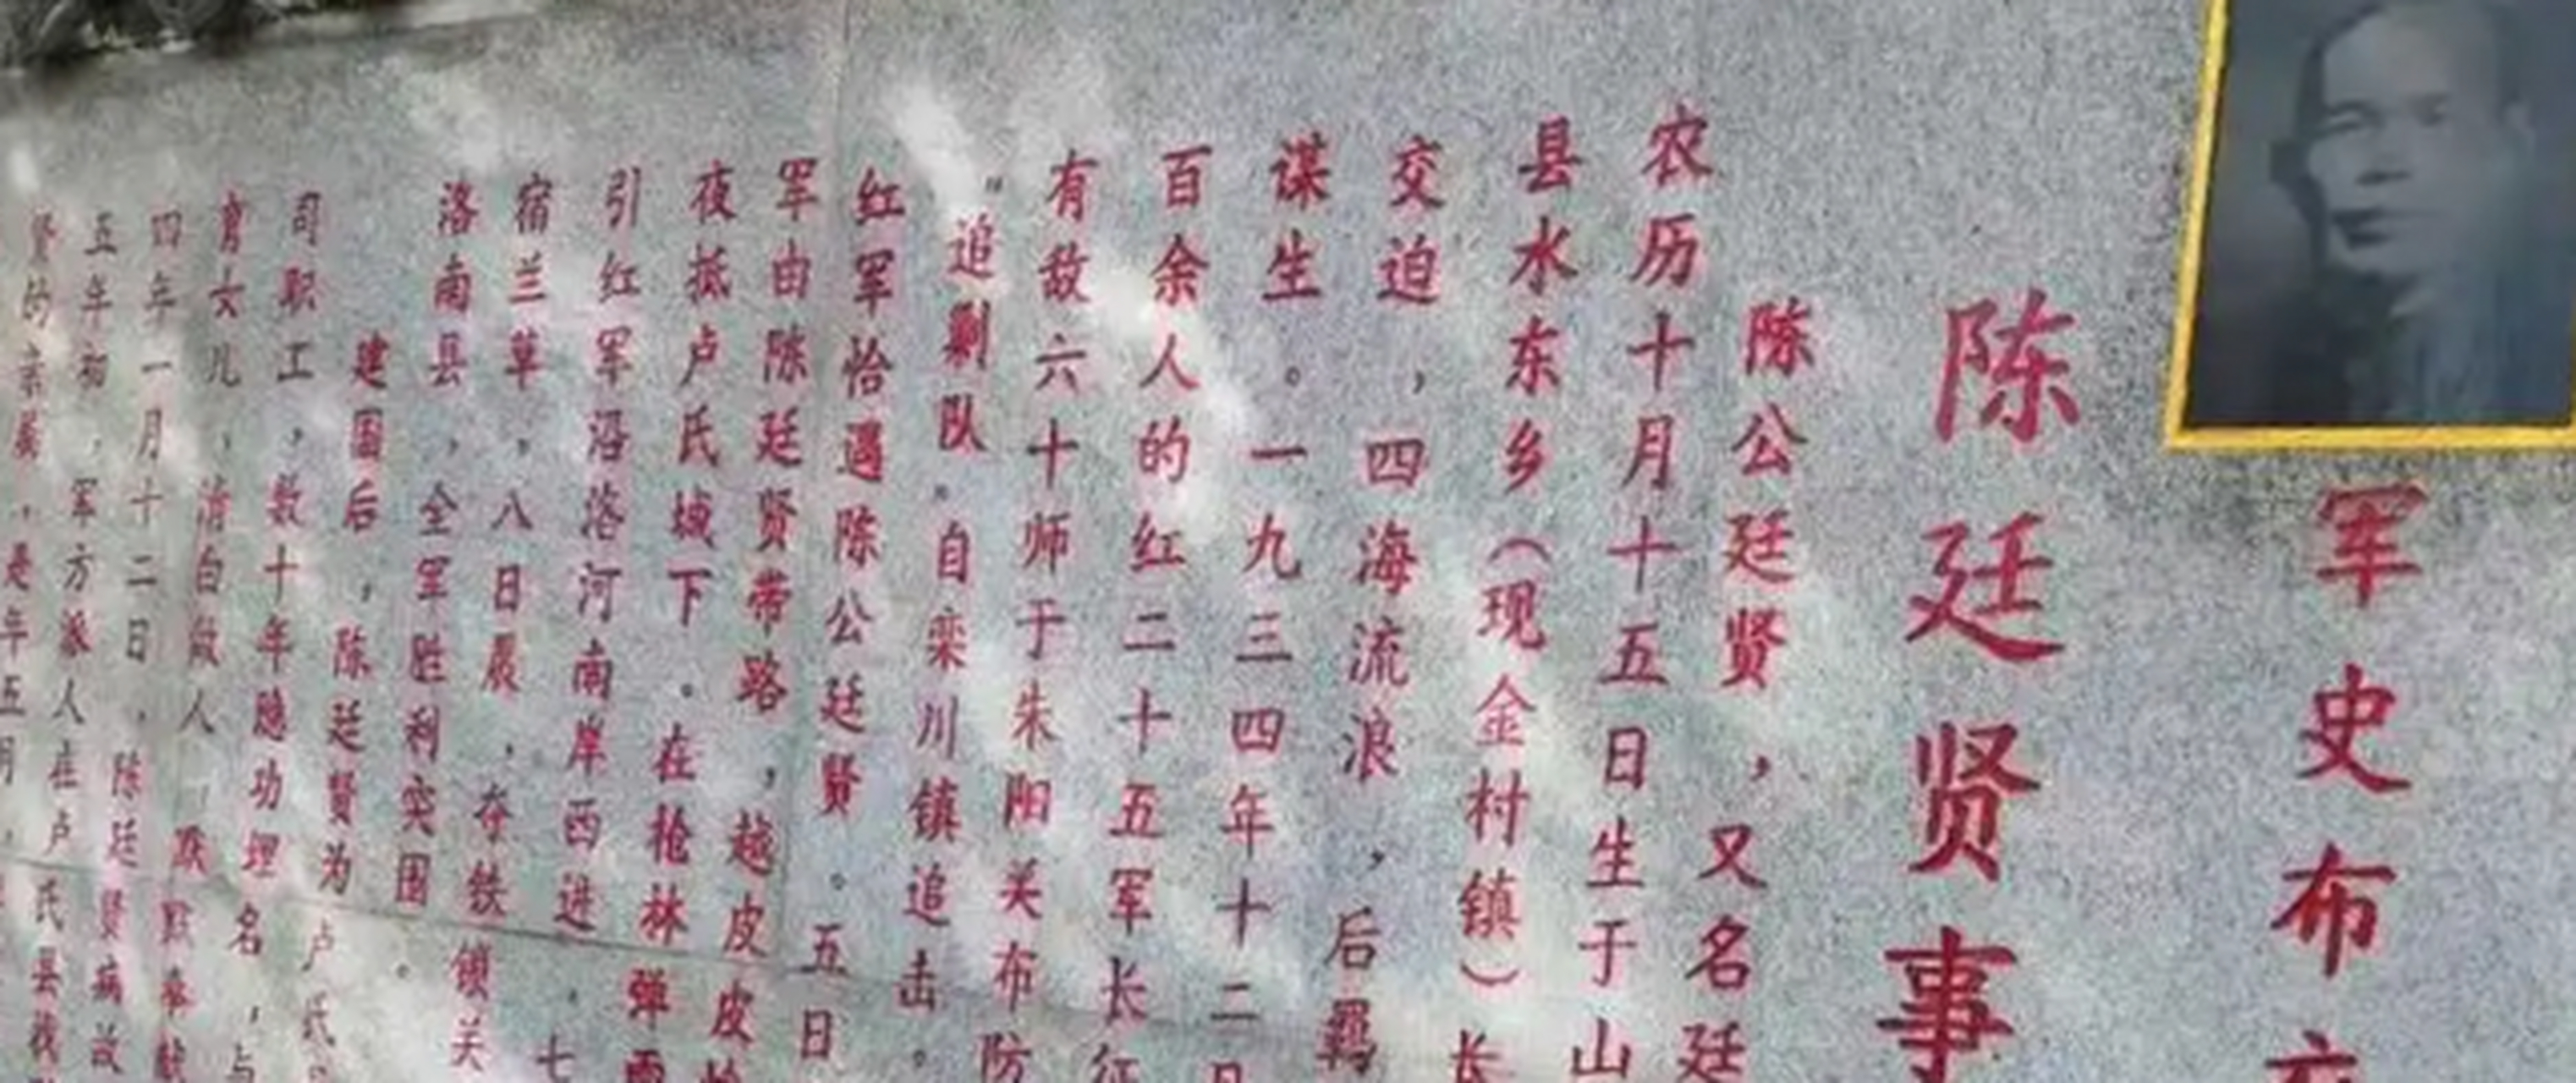 军史布
陈廷贤事
陈公廷贤，又名廷
农历十月十五日生于山
县水东乡（现金村镇）长
交迫，四海流浪，后羁
谋生。一九三四年十二
百余人的红二十五军长征
有敌六十师于朱阳关布防
“追剿队”自栾川镇追击。
红军恰遇陈公廷贤。五日
军由陈廷贤带路，越皮皮
夜抵卢氏城下。在枪林弹雨
引红军沿洛河南岸西进，七
宿兰草，八日晨，夺铁锁关
洛南县，全军胜利突围。
建国后，陈廷贤为卢氏
司职工，数十年隐功埋名，与
育女儿，清白做人，默默奉献
四年一月十二日，陈廷贤病故
五年初，军方派人在卢氏县找
贤的亲属，是年五月